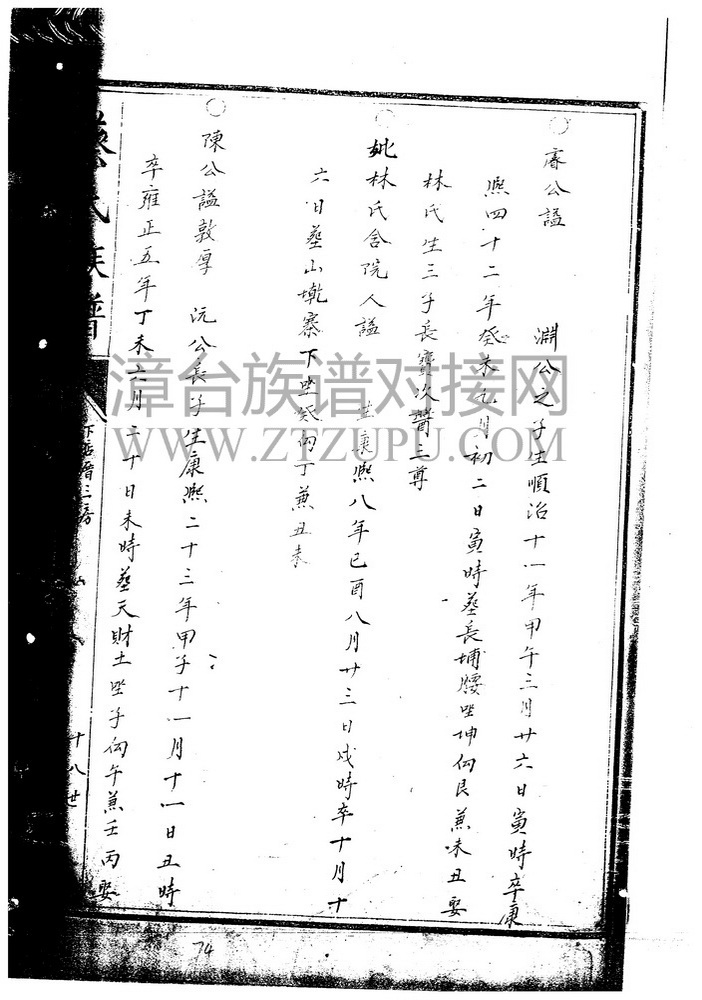 ○ 睿公諡
淵公之子生順治十一年甲午三月廿六日寅時卒康
熙四十二年癸未九月初二日寅時葬長埔腰坐坤向艮兼味丑娶
林氏生三子長寶次贊三尊
○ 妣林氏舍院人諡 生康熙八年己酉八月廿三日戌時卒十月十
六日葬山墘寨下坐癸向丁兼丑未
○ 陳公諡敦厚 沅公長子生康熙二十三年甲子十一月十一日丑時
卒雍正五年丁未六月二十日未時葬天財土坐子向午兼壬丙娶
蔡氏族譜
三房
十八世
74
漳台族谱对接网
WWW.ZTZUPU.COM